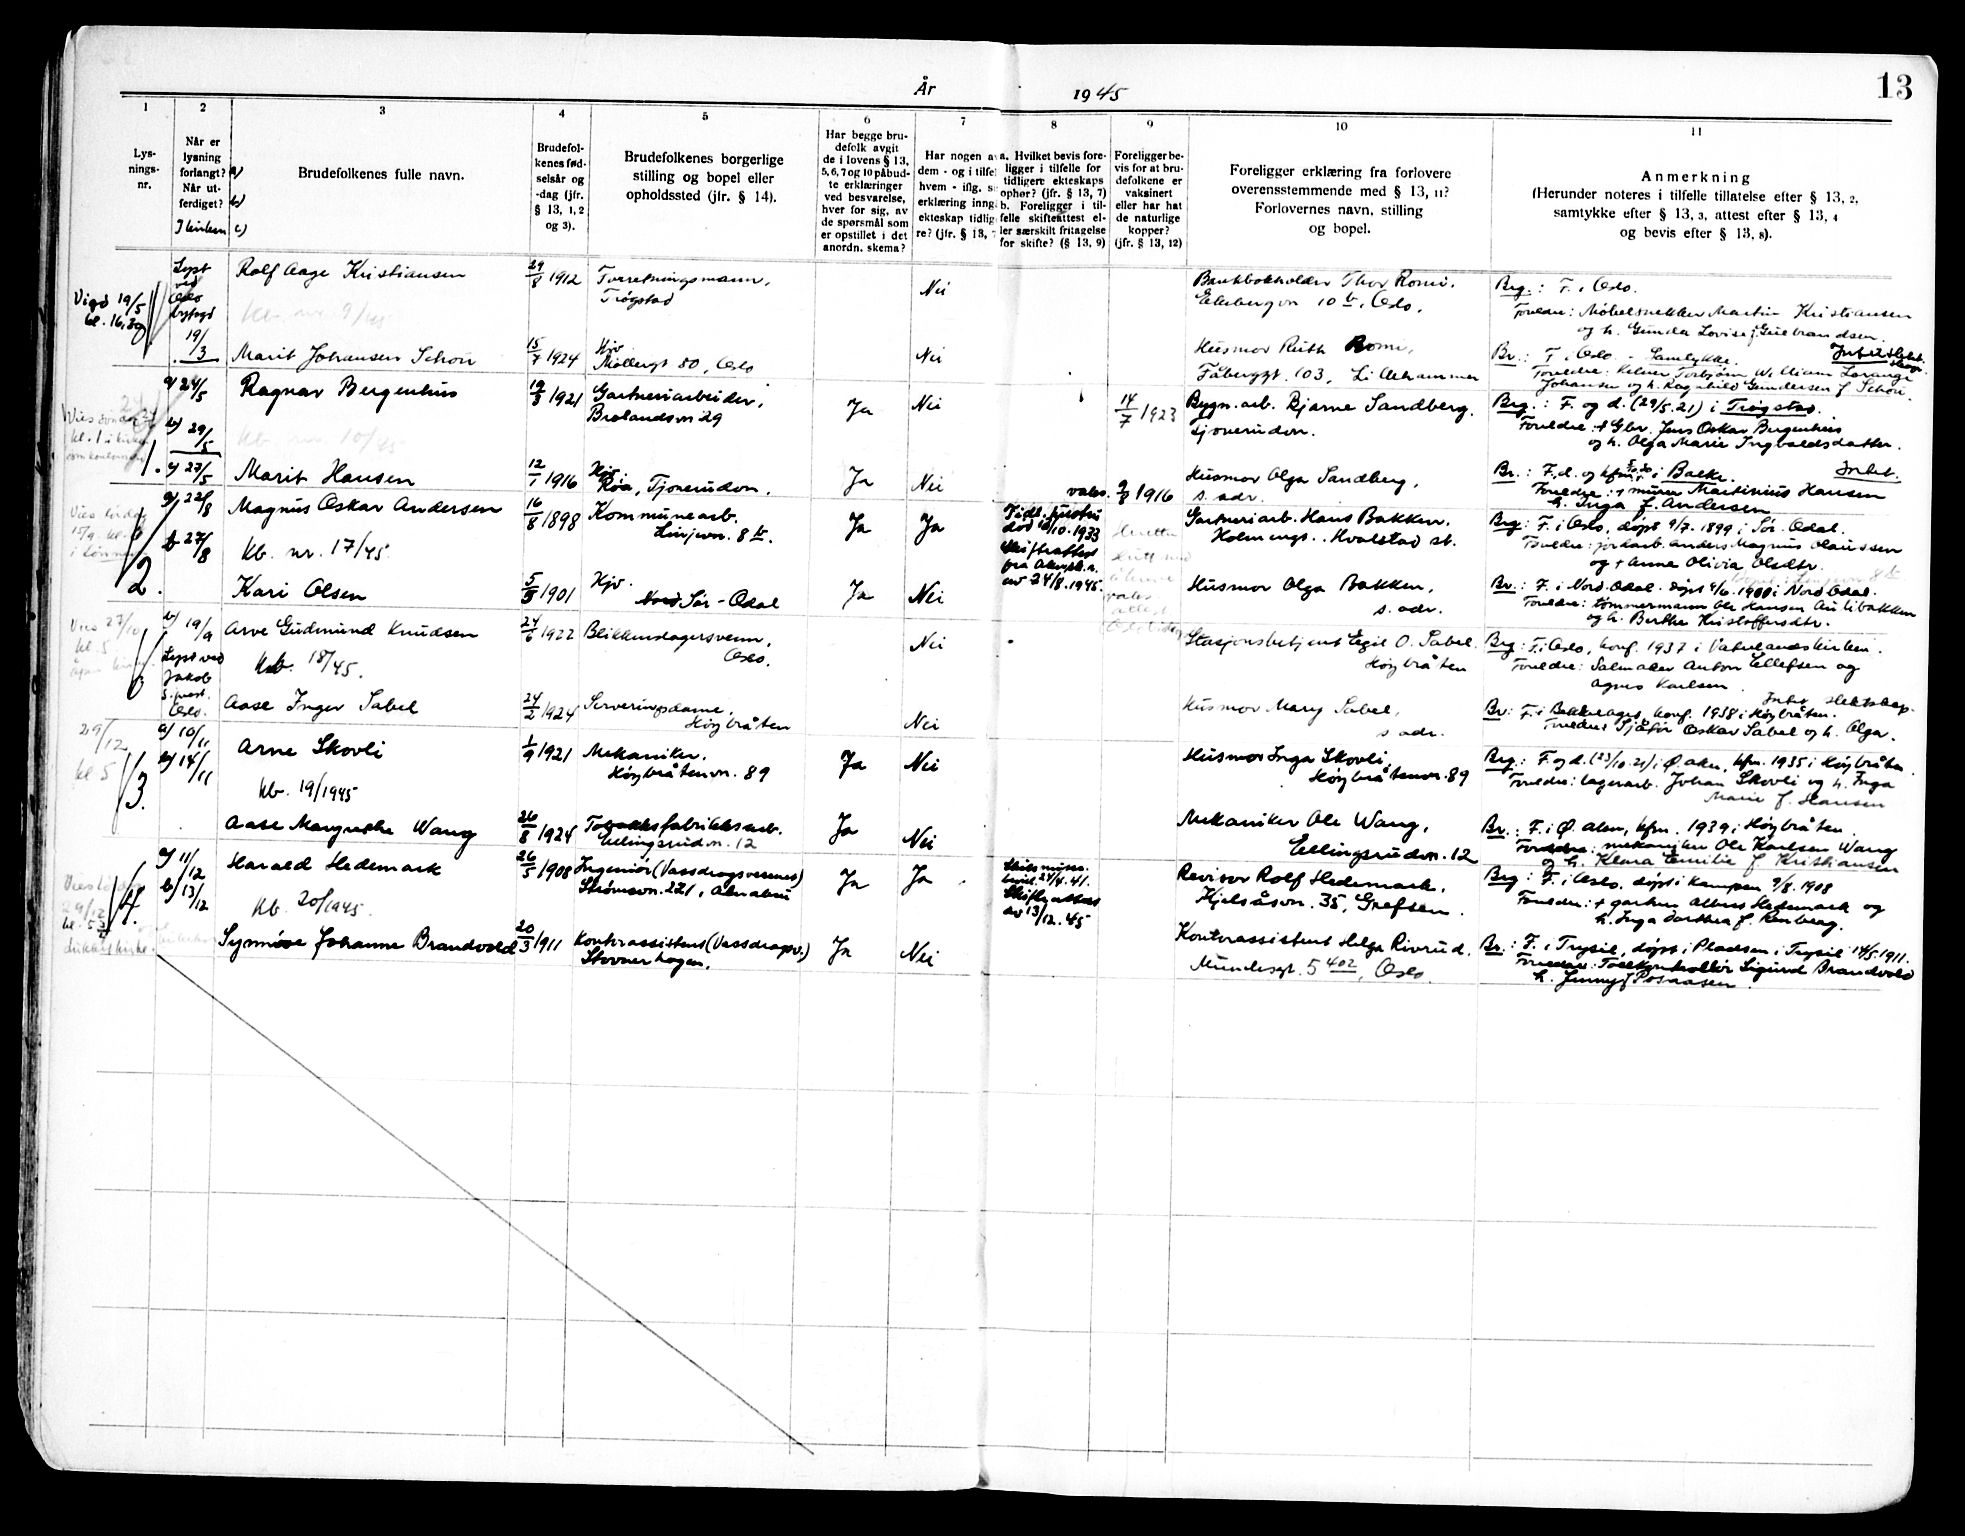 År 1945
13
1
2
3
4
5
6
7
8
9
10
11
Lys-
nings-
nr.
Når er
lysning
forlangt?
Når ut-
ferdiget?
I kirken
a)
b)
c)
Brudefolkenes fulle navn.
Brudefol-
kenes fød-
selsår og
-dag (jfr.
§ 13, 1, 2
og 3).
Brudefolkenes borgerlige
stilling og bopel eller
opholdssted (jfr. § 14).
Har begge bru-
defolk avgit
de i lovens § 13,
5, 6, 7 og 10 påbud-
te erklæringer
ved besvarelse,
hver for sig, av
de spørsmål som
er opstillet i det
anordn. skema?
Har nogen a
dem - og i tilfel
hvem - iflg. s
erklæring inng
ekteskap tidlig
re? (jfr. § 13,
a. Hvilket bevis fore-
ligger i tilfelle for
tidligere ekteskaps
ophør? (jfr. § 13, 7)
b. Foreligger i til-
felle skifteattest el-
ler særskilt fritagelse
for skifte? (§ 13, 9)
Foreligger be-
vis for at bru-
defolkene er
vaksinert
eller har hat
de naturlige
kopper?
(jfr. § 13, 12)
Foreligger erklæring fra forlovere
overensstemmende med § 13, 11?
Forlovernes navn, stilling
og bopel.
Anmerkning
(Herunder noteres i tilfelle tillatelse efter § 13, 2,
samtykke efter § 13, 3, attest efter § 13, 4
og bevis efter § 13, 8).
Vigd 19/5
kl. 16,30
Lyst
ved
Oslo
byfogd
19/3
Rolf Aage Kristiansen
kb. nr. 9/45
29/8 1912
Forretningsmann,
Trøgstad
Nei
Bankbokholder Thor Romi,
10 b, Oslo.
Brg.: F. i Oslo.
Foreldre: Møbelsnekker Martin Kristiansen
og h. Gunda Lovise f. Gulbrandsen.
Marit Johansen Schou
15/7 1924
Hjv
Møllergt 80, Oslo
Nei
Husmor Ruth Romi,
Fåberggt. 103, Lillehammer
Br.: F. i Oslo - Samtykke. Intet slekt-
skap.
Foreldre: Kelner Torbjørn William Lorange
Johansen og h. Ragnhild Gundersen f. Schou.
1.
a) 24/5
b) 29/5
c) 27/5
Ragnar Bergenhus
kb. nr. 10/45
19/3 1921
Gartneriarbeider,
Brolandsvn 29
Ja
Nei
14/7 1923
Bygn.arb. Bjarne Sandberg.
Tjoverudvn.
Brg.: F. og d. (29/5.21) i Trøgstad.
Foreldre: + Gbr. Jens Oskar Bergenhus
og h. Olga Marie Ingvaldsdatter.
Marit Hansen
12/1 1916
Hjv
Røa, Tjoverudvn.
Ja
Nei
vaks. 9/8 1916
Husmor Olga Sandberg,
s. adr.
Br.: F. d. og kfm. i Balke. Intet.
Foreldre: + murer Martinius Hansen
h. Inga f. Andersen
2.
a) 22/8
b 27/8
Magnus Oskar Andersen
kb. nr. 17/45
16/8 1898
Kommunearb.
Linjevn. 8 b.
Ja
Ja
Tidl. hustru
død 10/10. 1933
Skifteattest
fra
av 24/8. 1945.
Gartneriarb. Hans Bakken.
Holmengt. Hvalstad st.
Brg: F. i Oslo, døpt 9/7. 1899 i Sør-Odal.
Foreldre: jordarb. Anders Magnus Olaussen
og + Anne Olivia Olsdtr.
Kari Olsen
5/5 1901
Hjv.
Nord Sør-Odal
Ja
Nei
Husmor Olga Bakken,
s. adr.
Br.: F. i Nord Odal. døpt 4/6. 1900 i Nord Odal.
Foreldre: tømmermann Ole Hansen Aulibakken
og h. Berthe Kristoffersdtr.
Vies 27/10
kl. 5
b) 19/9
Lyst ved
Jakob
s. prest.
Oslo.
Arve Gudmund Knudsen
kb. 18/45.
24/6 1922
Blikkenslagersvenn,
Oslo.
Nei
Stasjonsbetjent Egil O. Sabel
Høybråten
Brg: F. i Oslo, konf. 1937 i Vaterlandskirken.
Foreldre: Salmaker Anton Ellefsen og
Agnes Karlsen.
Aase Inger Sabel
24/2 1924
Serveringsdame,
Høybråten
Nei
Husmor Mary Sabel,
s adr.
Intet slektskap.
Br: F. i Bekkelaget, konf. 1938 i Høybråten.
Foreldre Sjåfør Oskar Sabel og h. Olga.
29/12
kl 5
3.
a) 10/11
b) 14/11
Arne Skovli
kb. 19/1945
1/9 1921
Mekaniker.
Høybråtenvn. 89
Ja
Nei
Husmor Inga Skovli,
Høybråtenvn. 89
Brg.: F. og d. (23/10.21) i Ø. aker, kfm. 1935 i Høybråten.
Foreldre: lagerarb. Johan Skovli og h. Inga
Marie f. Hansen
Aase Margrethe Wang
26/8 1924
Tobakksfabrikkarb.
Ellingsrudvn. 12
Ja
Nei
Mekaniker Ole Wang,
Ellingsrudvn. 12
Br.: F. i Ø. aker, kfm. 1939 i Høybråten.
Foreldre: mekaniker Ole Karlsen Wang
og h. Klara Emilie f. Kristiansen
29/12
4.
a) 11/12
b) 13/12
Harald Hedemark
kb. 20/1945.
26/5 1908
Ingeniør (Vassdragsvesenet)
Strømsvn. 221, Alnabru
Ja
Ja
Skilsmisse-
bevil. 24/4. 41.
Skifteattest
av 13/12. 45
Revisor Rolf Hedemark.
Kjelsåsvn. 35, Grefsen.
Brg: F. i Oslo, døpt i Kampen 9/8. 1908
Foreldre: + gartner Albert Hedemark og
h. Inga Dorthea f. Renberg.
Synnøve Johanne Brandvold
20/3 1911
Kontorassistent (Vassdragsv.)
Stovnerhagen.
Ja
Nei
Kontorassistent Helga Rivrud.
Munchsgt. 5 402, Oslo.
Br.: F. i Trysil, døpt i Pladsen i Trysil 14/5. 1911.
Foreldre: Tollkontrollør Sigurd Brandvold
h. Jenny f. Posaasen.